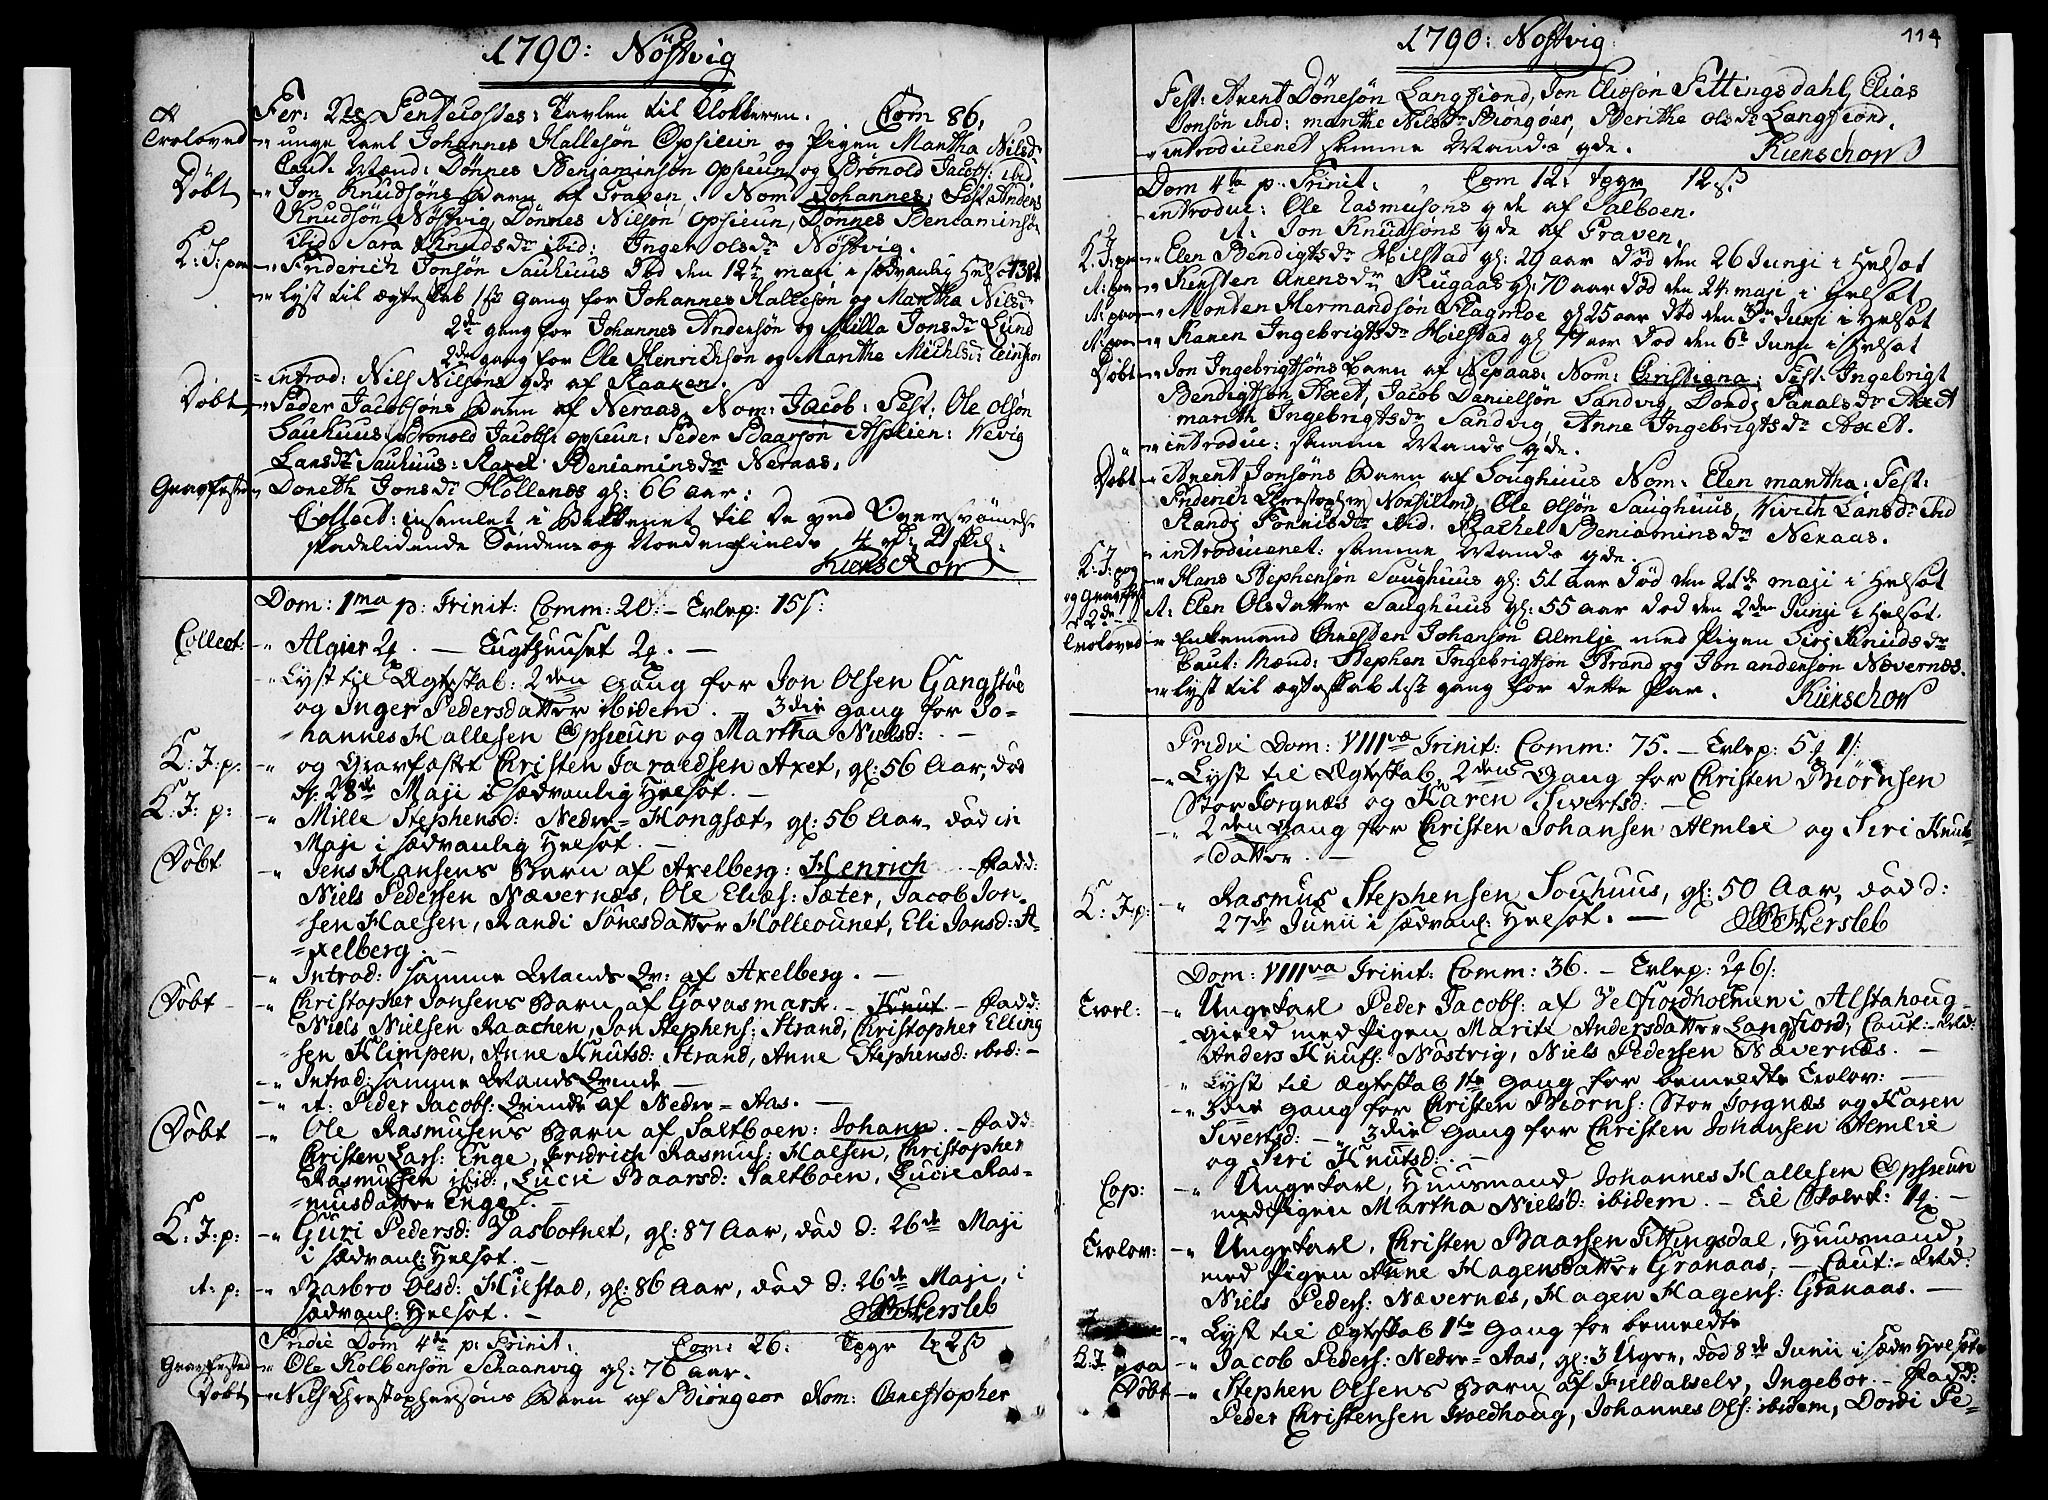 1790: Nöstvig
Fer: 2da Pentecostes: Tavlen til Klokkeren. Com 86,
Troloved - unge Karl Johannes Hallesön Opsieün og Pigen Mantha Nilsdr
Caut: Mænd: Dönnes Benjaminsön opsieün og Brönold Jacobs: ibid
Döbt - Jon Knudsöns Barn af Traxen. Nom: Johannes: Test: Anders
Knudsön Nöstvig, Dönnes Nilsön opsieün, Dönnes Beniaminsön
ibid Sara Knudsdr ibid: Inger olsdr Nöstvig.
K: J: paa - Friderich Jonsön Sauhuus död den 12te maji i sædvanlig Helsot 38
- lyst til ægteskab 1ste gang for Johannes Hallesön og Mantha Nilsdr
2de gang for Johannes Andersön og Milla Jonsdr Lund
2den gang for Ole Henrichsön og Marthe Michlsdr
- introd: Nils Nilsöns qde af Raaken.
Döbt - Peder Jacobsöns Barn af Neraas, Nom: Jacob: Test: Ole olsön
Sauhuus, Brönold Jacobs: opsieün: Peder Baarsön Asplien: Wevig
Larsdr Sauhuus: Raxel Beniaminsdr Neraas.
Gravfestet Doreth Jonsdr Hollenes gl: 66 aar:
Collect: insamlet i Bekkenet til de ved Oversvömelse
skadelidende Sönden og Nordenfields 4 21 skil:
Kierschow
Dom: 1ma p: Trinit: Comm: 20: - Tvlep: 15 s:
Collect: - Algier 2q. - Tugthuuset 2q. -
- Lyst til Ægteskab: 2den Gang for Jon Olsen Gangstöe
og Inger Pedersdatter ibidem. - 3die Gang for Jo-
hannes Hallesen Opsieun og Martha Nielsd: -
K: J: p: - og Gravfæstet Christen Jaraldsen Axet, gl: 56 Aar, död
d: 28de Maji i sædvanlig Helsot. -
K: J: p: - Mille Stephensd: Nedre-Hongsæt, gl: 56 Aar, död in
Maji i sædvanlig Helsot. -
Döbt - Jens Hansens Barn af Axelberg: Henrich - Fadd:
Niels Pedersen Nævernæs, Ole Eliæs: Sæter, Jacob Jon-
sen Halsen, Randi Tönesdatter Holleounet, Eli Jonsd: A-
xelberg. -
- Introd: samme Mands Qv: af Axelberg. -
Döbt - Christopher Jonsens Barn af Gavasmark - Knut - Fadd:
Niels Nielsen Raachen, Jon Stephens: Strand, Christopher Elling
sen Klimpen, Anne Knutsd: Strand, Anne Stephensd: ibid: -
- Introd: samme Mands Qvinde -
- A: Peder Jacobs: Qvinde af Nedre-Aas. -
Döbt - Ole Rasmusens Barn af Saltboen: Johann - Fadd:
Christen Lars: Enge, Fridrich Rasmus: Halsen, Christopher
Rasmusen ibid:, Lucie Baarsd: Saltboen, Lucie Ras-
musdatter Enge. -
K: J: p: - Guri Pedersd: Vasbotnet, gl: 87 Aar, död d: 26de Maji
i sædvanl: Helsot. -
A: p: - Barbro Olsd: Hilstad, gl: 86 Aar, död d: 26de Maji, i
sædvanl: Helsot. - Hersleb
Pridie Dom 4ta p: Trinit: Com: 26: 2 ß
Gravfested - Ole Kolbensön Schaanvig gl: 76 aar.
Döbt - Nils Christophersöns Barn af Biörngeor Nom: Christopher
1790: Nöstvig. 114
Test: Arent Dönesön Langfiord, Jon Eliesön Fettingsdahl, Elias
Jonsön ibid: marthe Nilsdr Biörngöer, Berithe olsdr Langfiord.
- introduceret samme Mands qde. Kierschow
Dom 4ta p: Trinit: Com 12: 12 ß
- introduc: Ole Rasmusöns qde af Salboen.
- A: Jon Knudsöns qde af Traven.
K: J: paa - Elen Bendigtsdr Hilstad gl: 29 aar död den 26 Junji i Helsot
A: paa - Kersten Arensdr Rugaas gl: 70 aar död den 24 maji i Helsot
A: paa - Morten Hermandsön Flagmoe gl 25 aar död den 3de Junji i Helsot
A: paa - Karen Ingebrigtsdr Hielstad gl 77 aar död den 6te Junji i Helsot
Döbt - Jon Ingebrigtsöns Barn af Nepaas: Nom: Christiana: Test: Ingebrigt
Bendigtsön Axet, Jacob Danielsön Sandvig, Dordi Paralsdr Axet
marith Ingebrigtsdr Sandvig, Anne Ingebrigtsdr Axet.
- introduc: samme Mands qde.
Döbt - Arent Jonsöns Barn af Soughuus Nom: Elen mantha: Test:
Friderich Ole Olsön Saughuus, Vivich Larsdr ibid
Randi Tönnisdr ibid. Rachel Beniaminsdr Neraas.
- introduceret: samme Mands qde.
K: J: paa - Hans Stephensön Saughuus gl: 51 aar död den 21de maji i Helsot
og Gravfest 2de A: Elen Olsdatter Saughuus gl: 55 aar död den 2den Junji i Helsot.
Troloved - Enkemand Christen Johansön Almlje med Pigen Siri Knudsdr
Caut: Mænd: Stephen Ingebrigtsön Strand og Jon andersön Nævernes.
- lyst til ægteskab 1ste gang for dette Par. Kierschow
Pridie Dom: VIIIvæ Trinit: Comm: 75. - Tvlep: 5q 1 s:
- Lyst til Ægteskab 2den Gang for Christen Biörnsen
Stor Torgnæs og Karen Sivertsd: -
- 2den Gang for Christen Johansen Almlie og Siri Knuts-
datter. -
K: J: p: - Rasmus Stephensen Souhuus, gl: 50 Aar, död d:
27de Junii i sædvanl: Helsot. - Hersleb
Dom: VIIIva Trinit: Comm: 36. - Tvlep: 2q 6 s:
Trol: - Ungekarl Peder Jacobs: af Velfiordholmen i Alstahoug-
Gield med Pigen Marite Andersdatter Langfiord, Caut: Md:
Anders Knuts: Nöstvig, Niels Pedersen Nævernæs. -
- Lyst til Ægteskab 1te Gang for bemeldte Trolov: -
- 3die Gang for Christen Biörns: Stor Torgnæs og Karen
Sivertsd: - 3die Gang for Christen Johansen Almlie
og Siri Knutsd: -
Cop: - Ungekarl, Huusmand Johannes Hallesen Opsieun
med Pigen Martha Nielsd: ibidem. - Til Skolek: 1q. -
Trolov: - Ungekarl, Christen Baarsen Fittingsdal, Huusmand,
med Pigen Anne Hagensdatter Granaas, - Caut: Md:
Niels Peders: Nævernæs, Hagen Hagens: Granaas. -
- Lyst til Ægteskab 1te Gang for bemeldte
K: J: paa - Jacob Peders: Nedre-Aas, gl: 3 Uger, död 8de Junii i sædv Helsot
Döbt - Stephen Olsens Barn af Fuldalselv, Ingebor - Fadd:
Peder Christensen Troldhoug, Johannes Ols: ibidem, Dordi Pe-